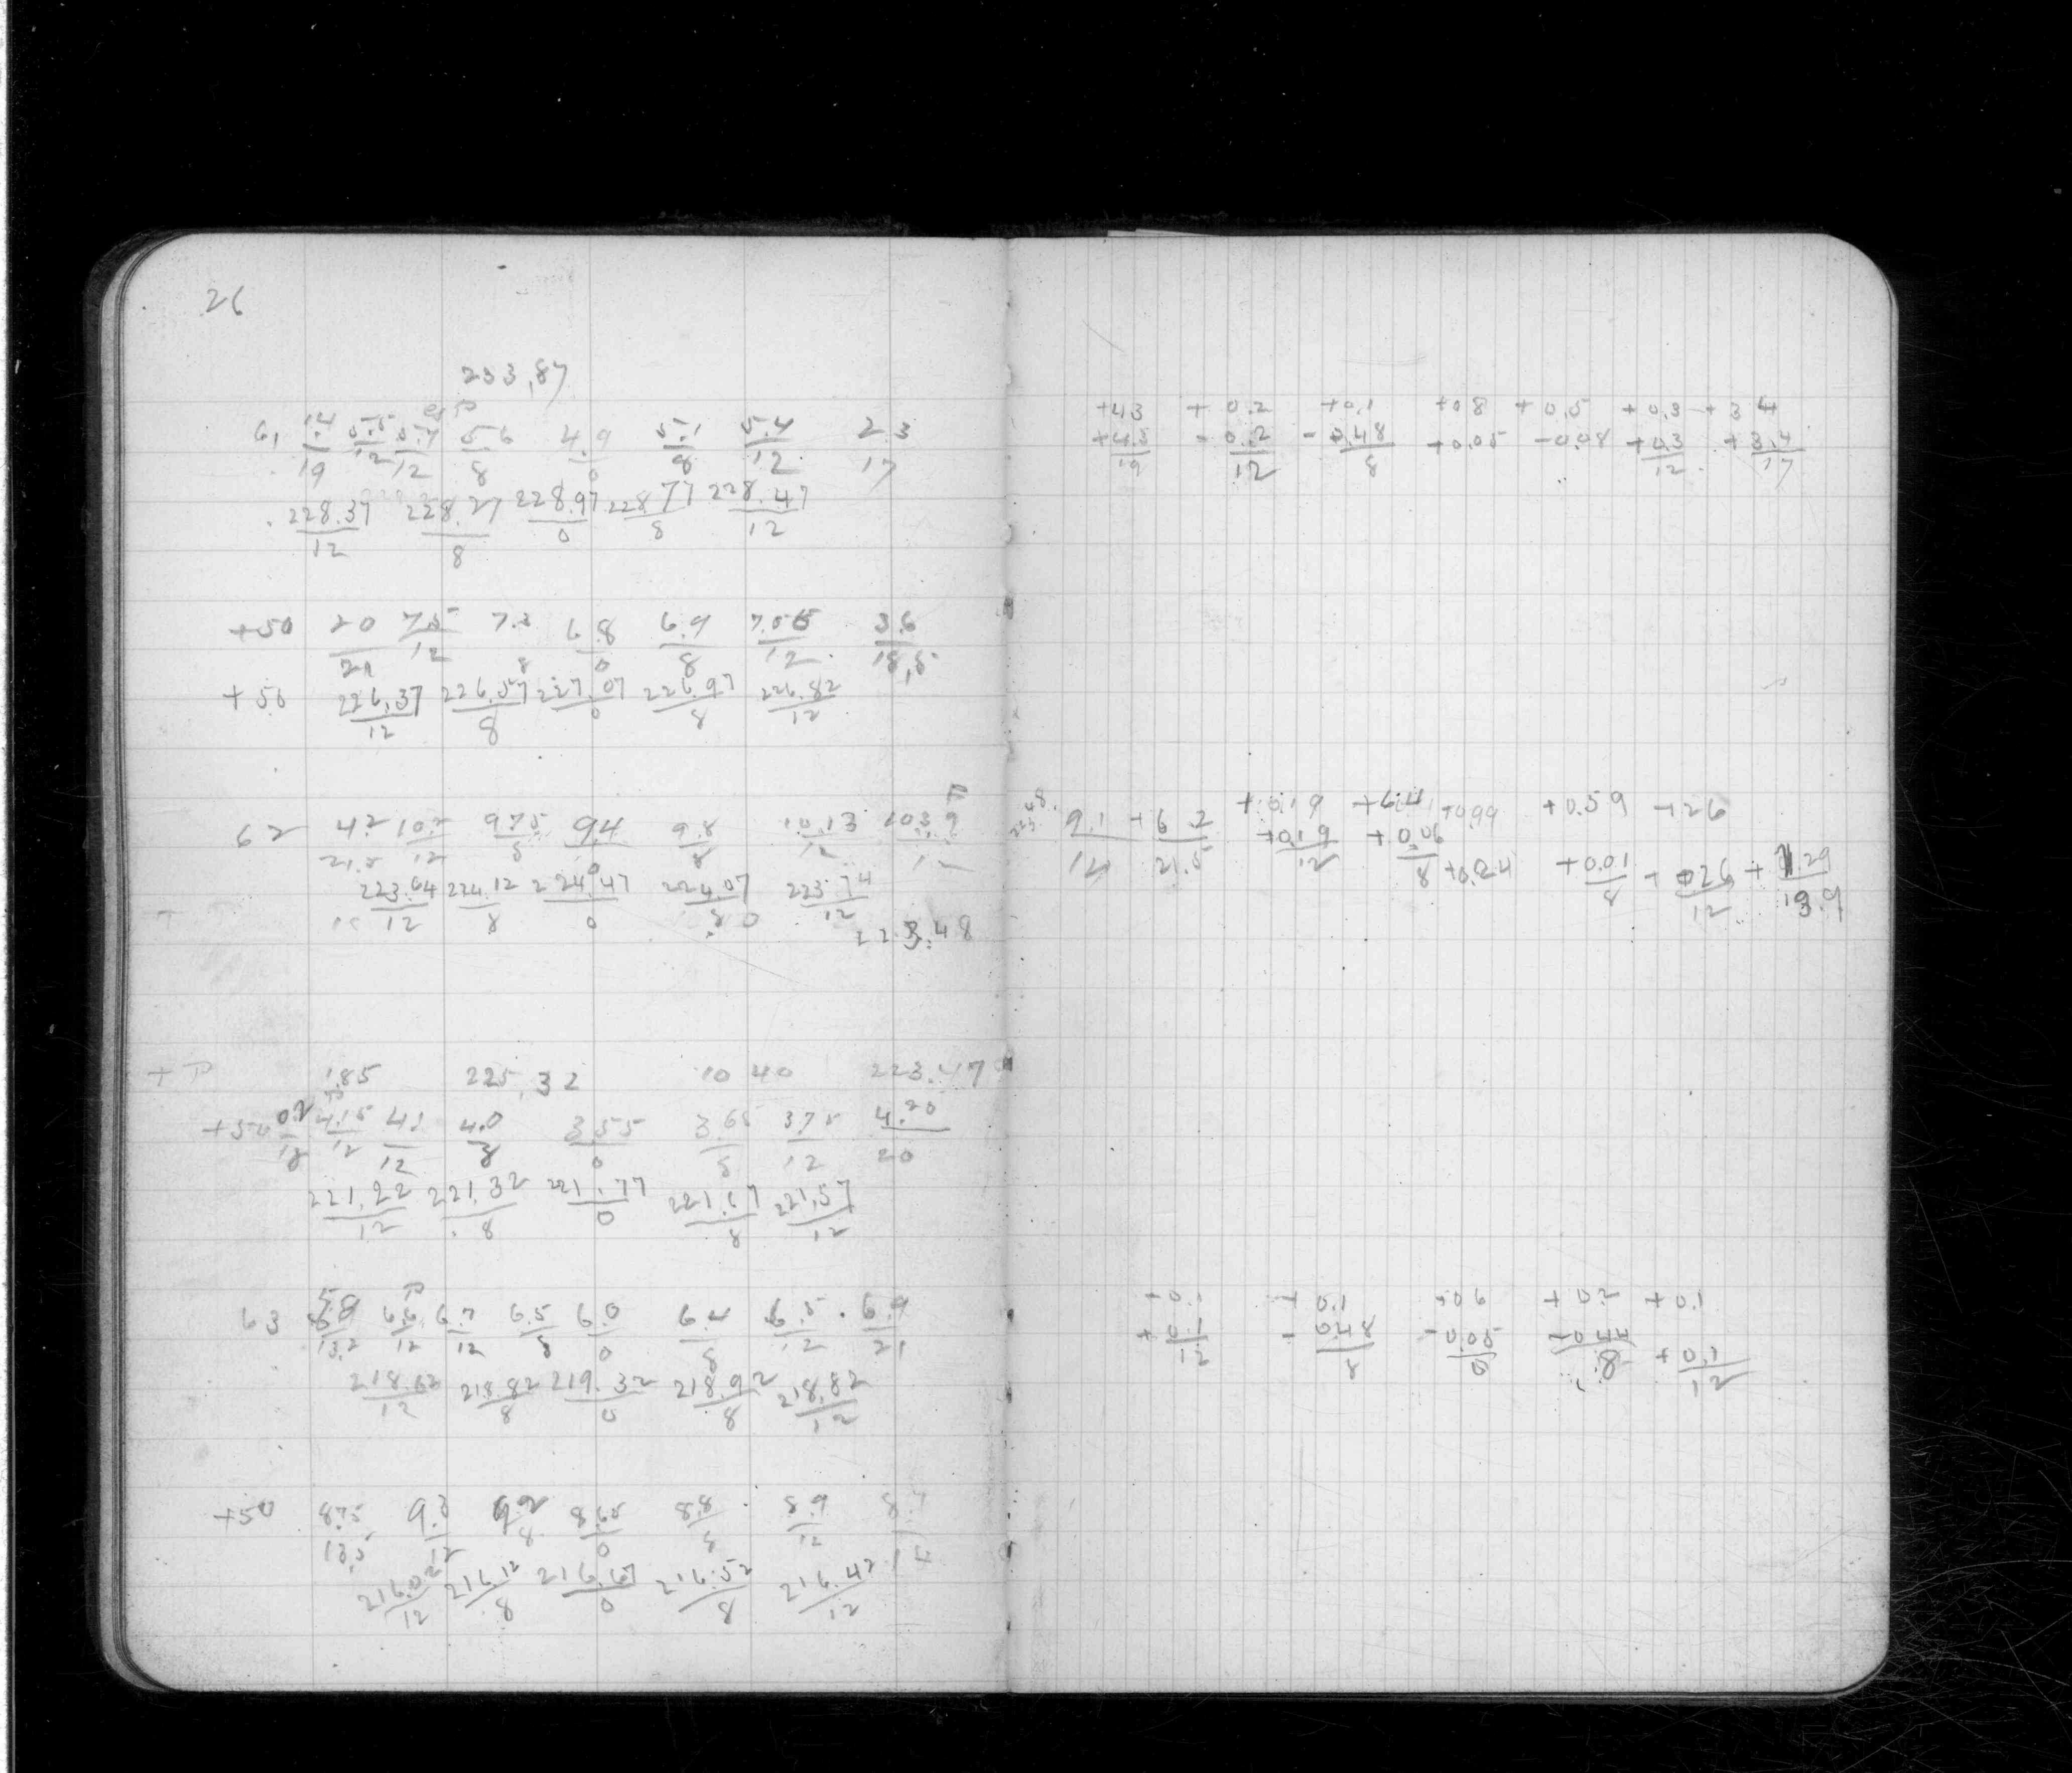 26
233.87
61 1.4/19 5.5/12 5.4/12 5.6/8 4.9/0 5.1/8 5.4/12 2.3/17
228.37/12 228.27/8 228.97/0 228.77/8 228.47/12
+50 20/21 7.5/12 7.3/8 6.8/0 6.9/8 7.05/12 3.6/18.5
+50 226.37/12 226.57/8 227.07/0 226.97/8 226.82/12
62 4.2/21.5 10.2/12 9.75/8 9.4/0 9.8/8 10.13/12 10.39
223.64/12 224.12/8 224.47/0 224.07/8 223.74/12
223.48
1.85 225.32 10 40 223.47
+50 0.2/18 4.15/12 4.1/12 4.0/8 3.55/0 3.65/8 3.75/12 4.20/20
221.22/12 221.32/8 221.77/0 221.67/8 221.57/12
63 5.8/13.2 6.6/12 6.7/12 6.5/8 6.0/0 6.4/8 6.5/12 6.9/21
218.62/12 218.82/8 219.32/0 218.92/8 218.82/12
+50 8.75/13.5 9.3/12 9.2/8 8.65/0 8.8/8 8.9/12
216.02/12 216.12/8 216.67/0 216.52/8 216.42/12
+4.3 + 0.2 +0.1 +0.8 + 0.5 + 0.3 + 3 4
+4.3/19 - 0.2/12 - 0.48/8 +0.05 -0.08 +0.3/12 +3.4/17
9.1/12 +6.2/21.5 +0.19 +0.99 +0.59
+0.19/12 +0.06/8 +0.24 +0.01/8 + 026/12 19.9
+ 0.1 +0.6 + 0.2 + 0.1
+ 0.1/12 - 0.48/8 -0.05/0 -0.44/8 + 0.1/12